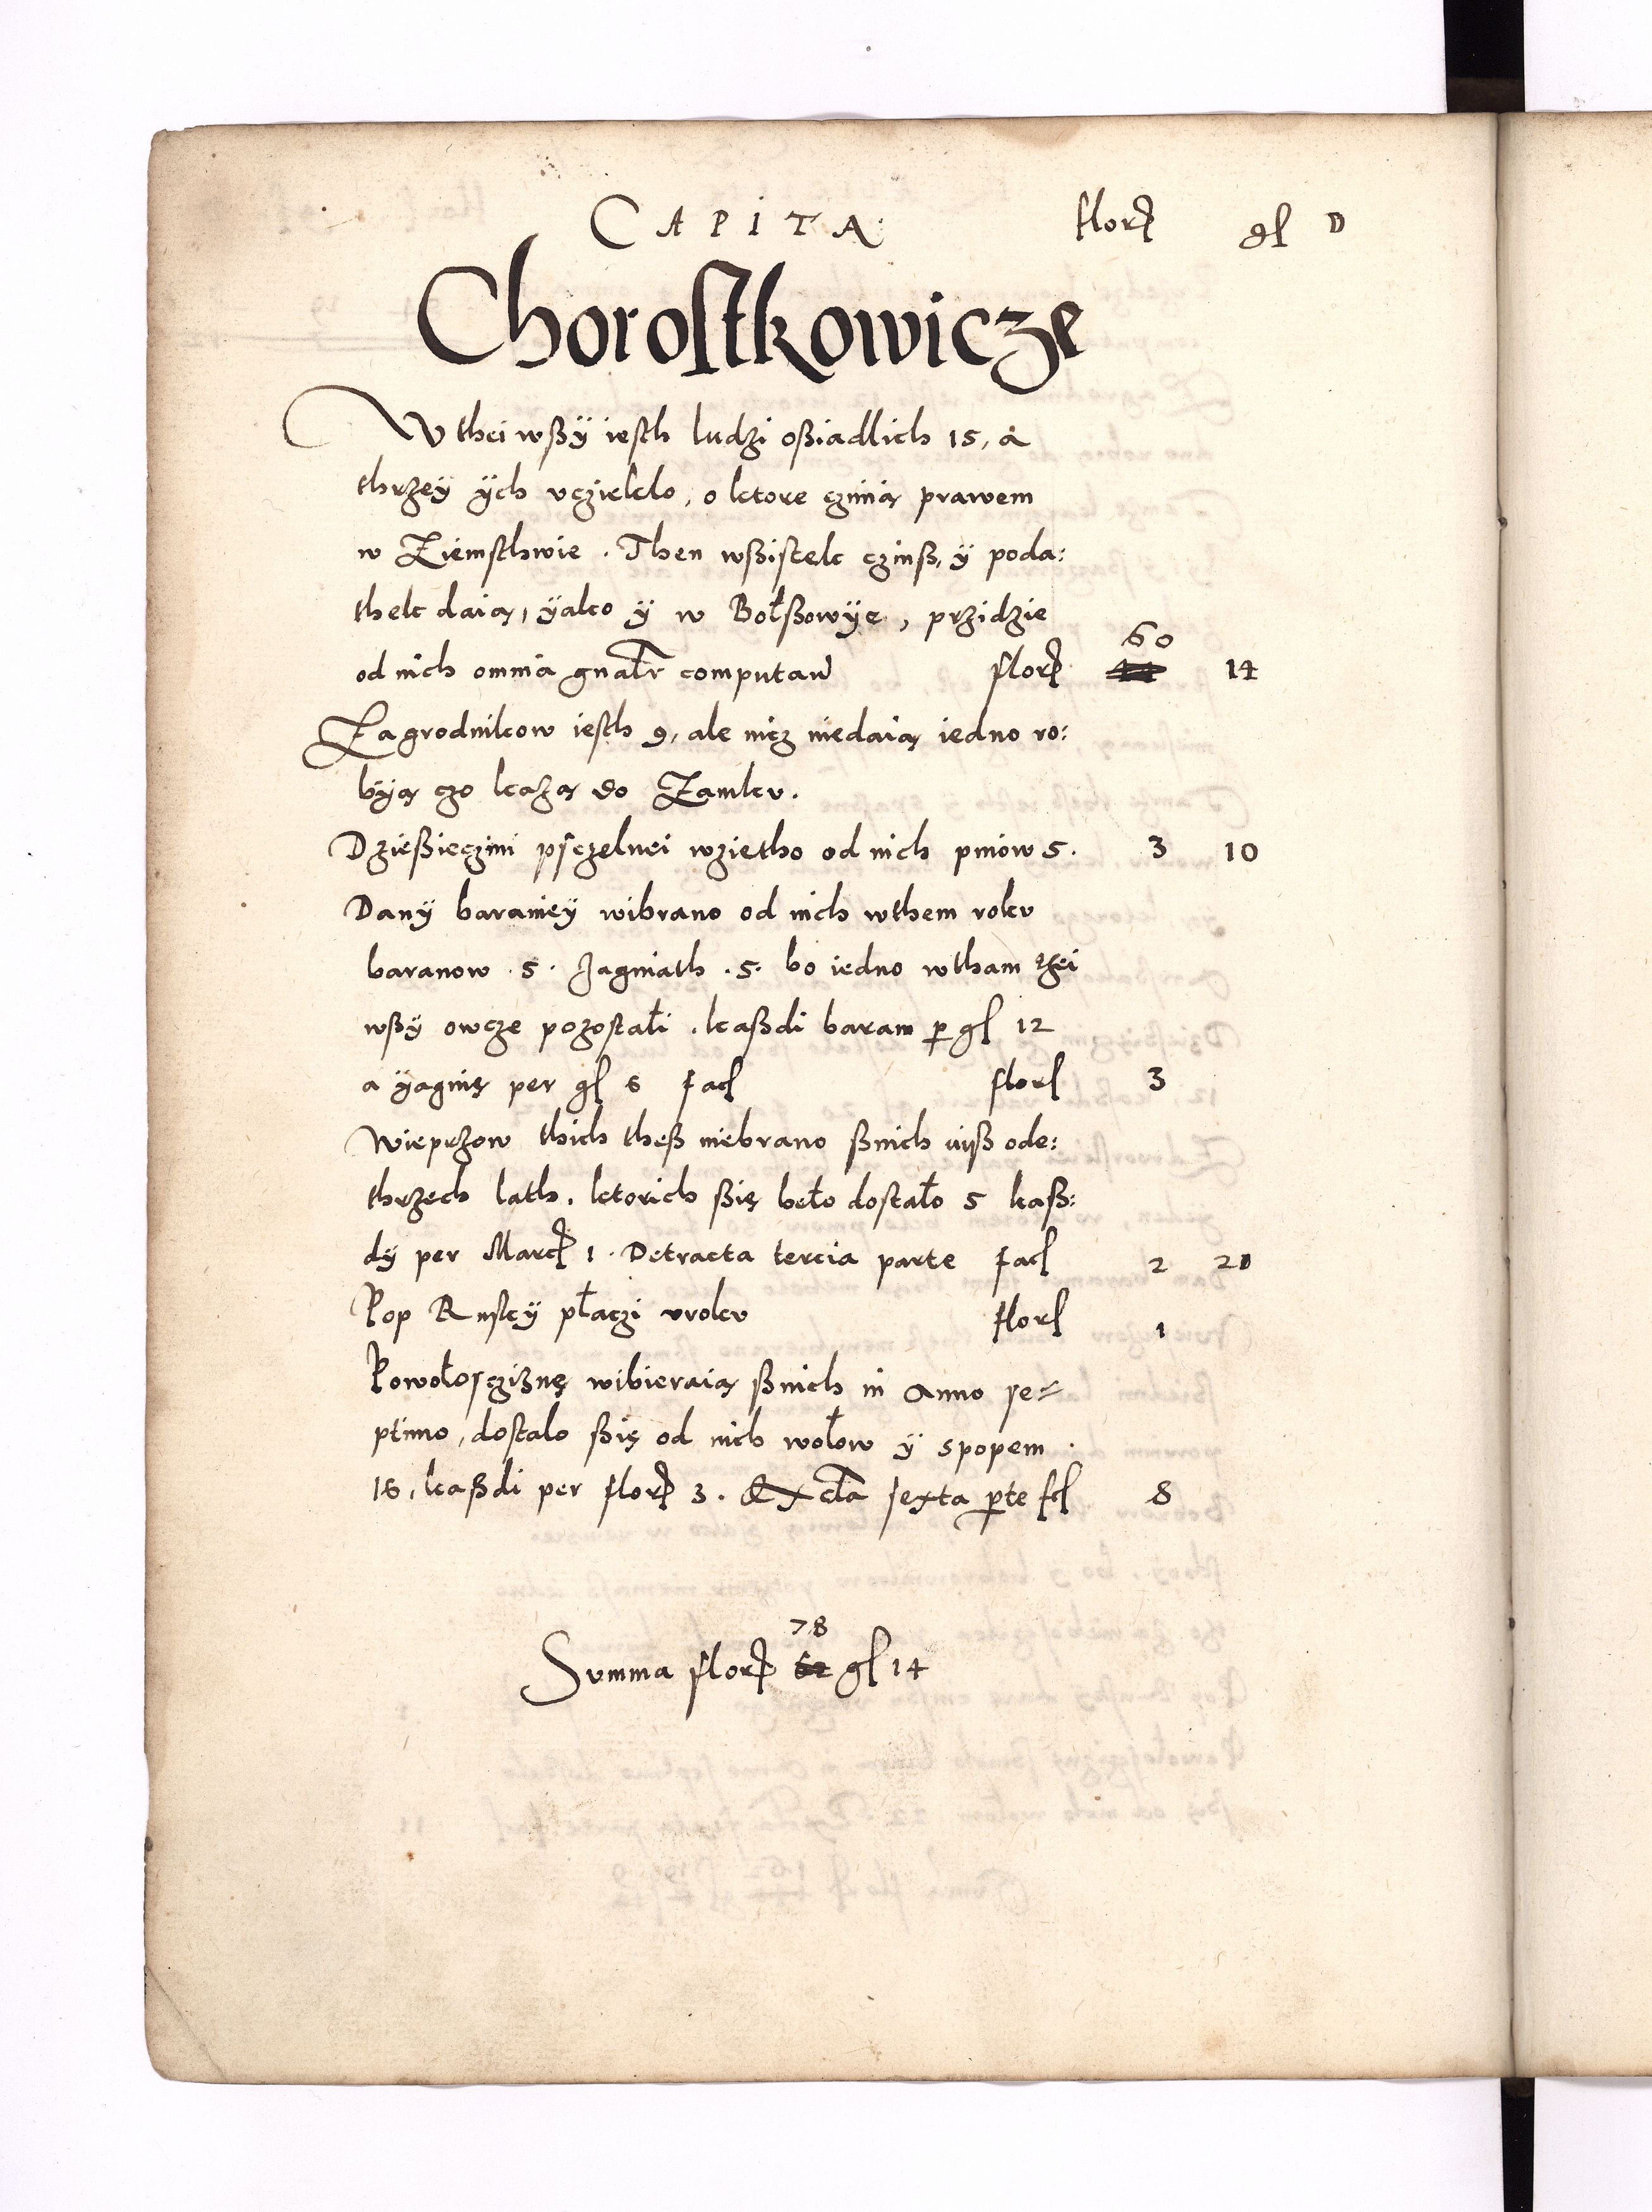 CAPITA florƺ gl D
Choroſtkowicze
W thei wßÿ ieſth ludzi oßiadlich 15, a
thrzeÿ ÿch vczieklo, o ktore czinią prawem
w Ziemſthwie. Then wßiſtek czinß, ÿ poda:
thek daią, ÿako ÿ w Bołßowÿe, przidzie
60
od nich omnia gnałr computań florƺ 44 14
Zagrodnikow ieſth 9, ale nicz niedaią iedno ro:
bÿą czo każą do Zamku.
Dzießieczini pſczelnei wzietho od nich pniow 5. 3 10
Danÿ baranieÿ wibrano od nich wthem roku
baranow .5. Jagniath .5. bo iedno wtham tzei
wßÿ owcze pozoſtałi. kaßdi baram p gl 12
a ÿagnię per gl 6 facl florl 3
Wieprzow thich theß niebrano ßnich iuß ode:
thrzech lath. ktorich ßię beło doſtało 5 kaß:
dÿ per Marcƺ 1. Detracta tercia parte facl 2 20
Pop Ruſkÿ płaczi vroku florl 1
Powołoſcziznę wibieraią ßnich in anno ſe=
ptimo, doſtalo ßię od nich wołow ÿ spopem
16, kaßdi per florƺ 3. Excta ſexta pte fcl 8
78
Summa florƺ 62 gl 14